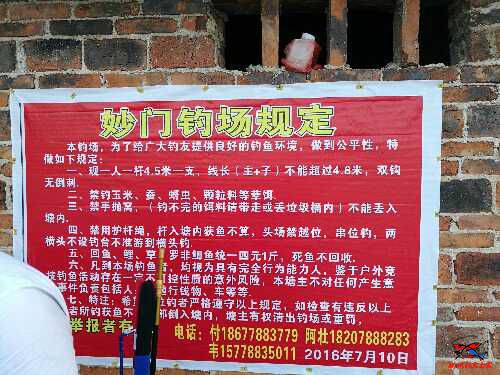 妙门钓场规定
本钓场，为了给广大钓友提供良好的钓鱼环境，做到公平性，特
做如下规定：
一、观一人一杆4.5米一支，线长（主+子）不能超过4.8米，双钩
无倒刺。
二、禁钓玉米、蚕、蚜虫、颗粒料等荤饵。
三、禁手抛窝，（钓不完的饵料请带走或丢垃圾桶内）不能丢入
塘内。
四、禁用护杆绳，杆入塘内获鱼不算，头场禁越位，串位钓，两
横头不设钓台不准游到横头钓。
五、回鱼、鲤、草、罗非鲫鱼统一四元1斤，死鱼不回收。
六、凡到本场钓鱼者，均视为具有完全行为能力人，鉴于户外竞
技钓鱼活动存在一定不可控性质的意外风险，本塘主不对任何产生意
事件负责包括人、银行钱物、车等等。
七、特注：希 位钓者严格遵守以上规定，如检查有违反以上
者所钓获鱼不 部倒入塘内，塘主有权清出钓场或重罚，
举报者有
电话：付18677883779 阿壮18207888283
韦15778835011 2016年7月10日